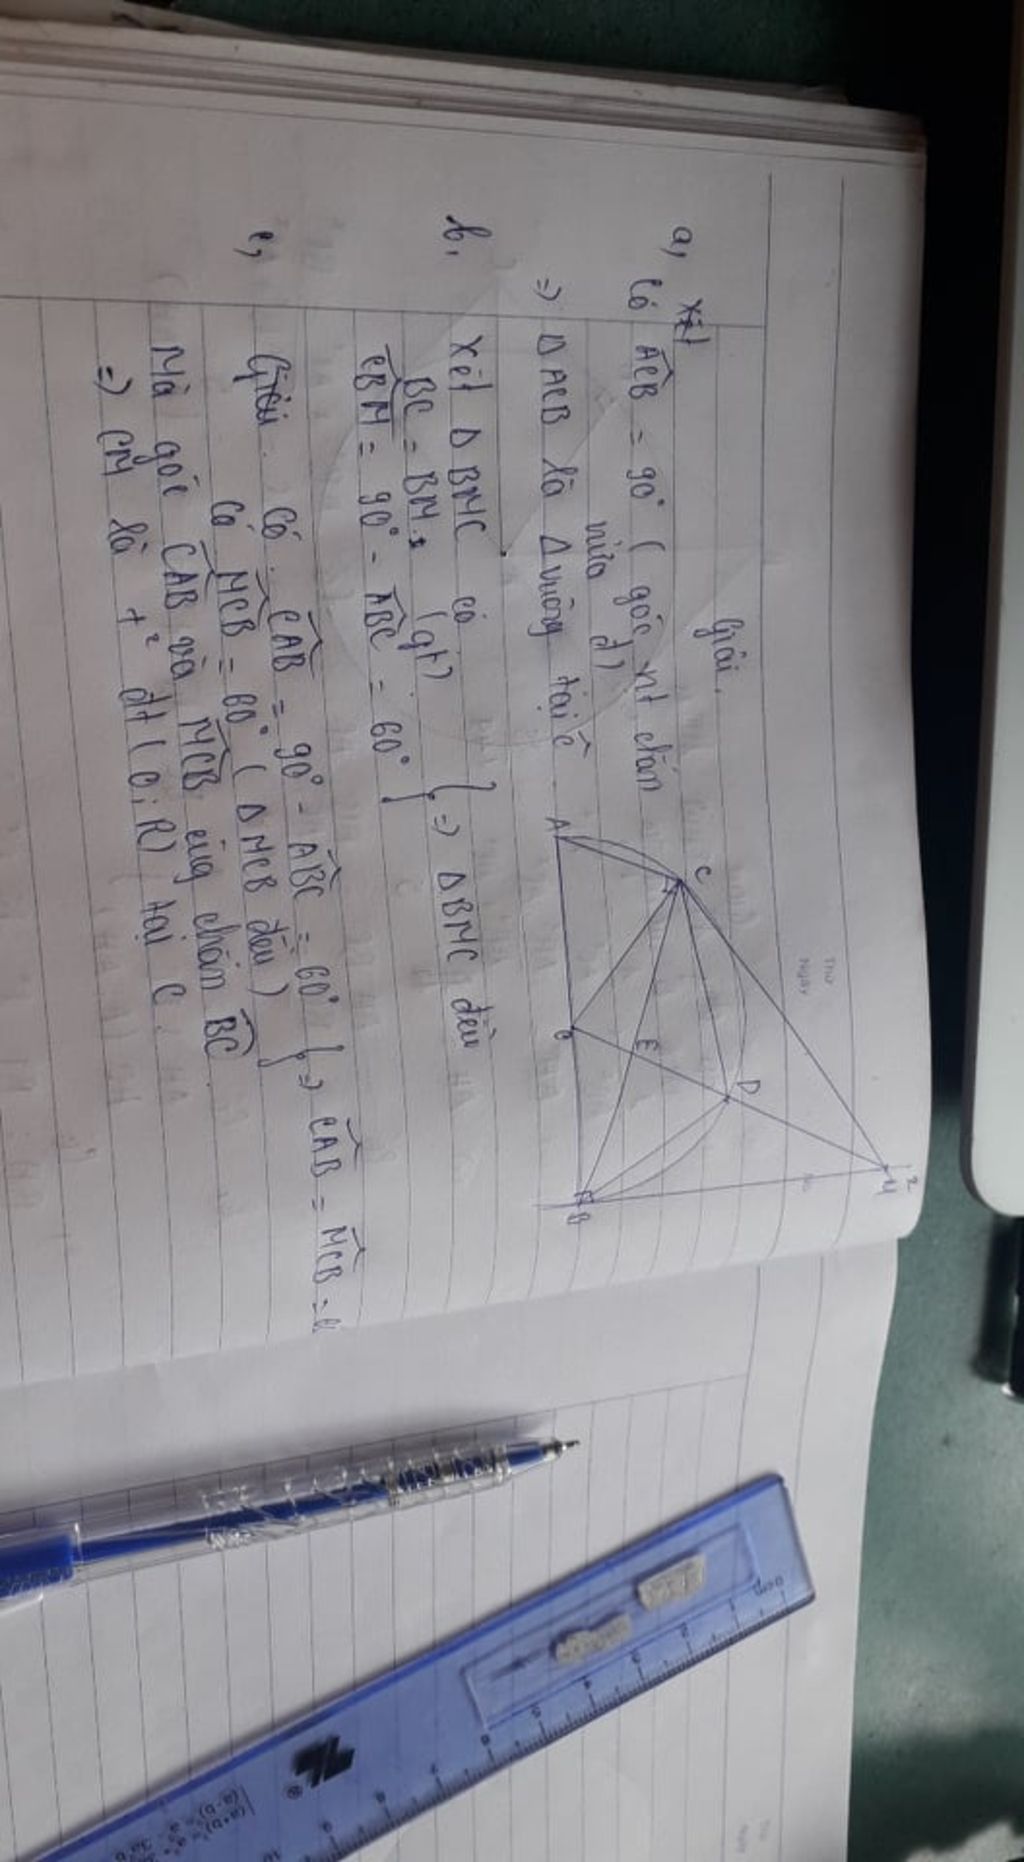 Thứ
Ngày
Giải.
a, Xét
Có ACB = 90° ( góc nt chắn
nửa đ)
=> Δ ACB là Δ vuông tại C
A
C
O
E
D
B
M
b,
Xét Δ BMC có
BC = BM (gt)
CBM = 90° - ABC = 60°
} => Δ BMC đều
c,
Giải. Có CAB = 90° - ABC = 60°
Có MCB = 60° ( Δ MCB đều )
} => CAB = MCB =
Mà góc CAB và MCB cùng chắn BC
=> CM là t² đt ( O; R) tại C.
0cm